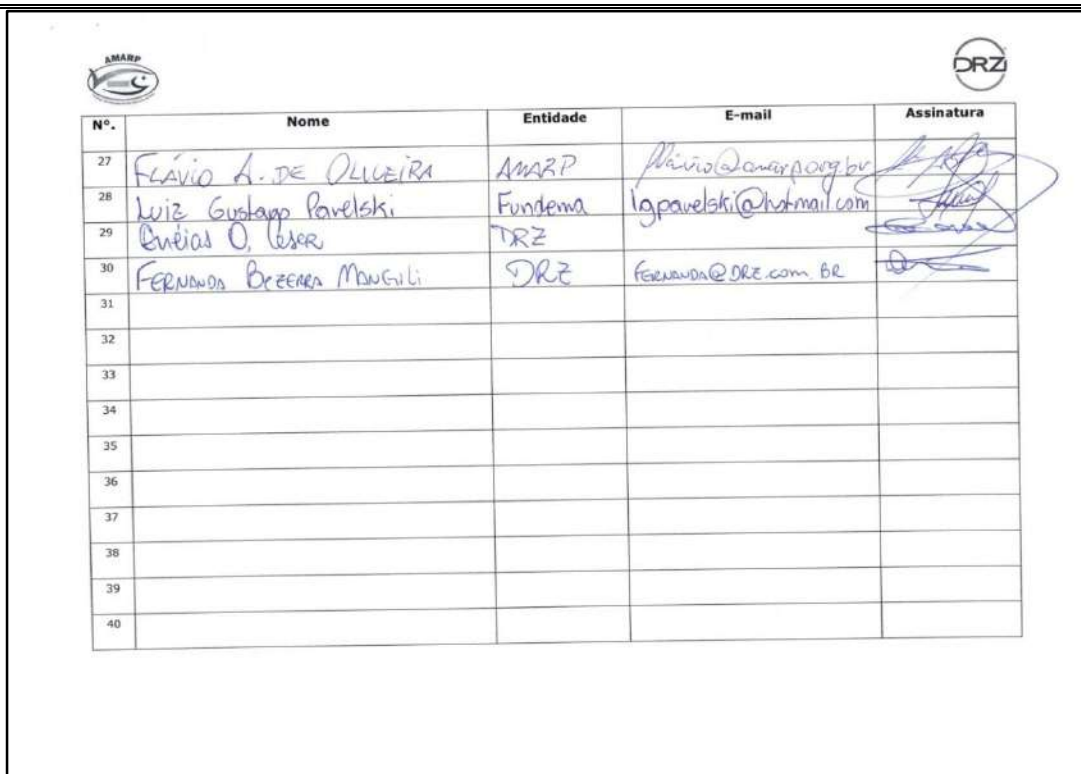 AMARP
DRZ
Nº. Nome Entidade E-mail Assinatura
27 FLÁVIO A. DE OLIVEIRA AMARP flavio@amarp.org.br
28 Luiz Gustavo Pavelski Fundema lgpavelski@hotmail.com
29 Enéias O. Cesar DRZ
30 FERNANDA BEZERRA MANGILI DRZ FERNANDA@DRZ.com.BR
31
32
33
34
35
36
37
38
39
40